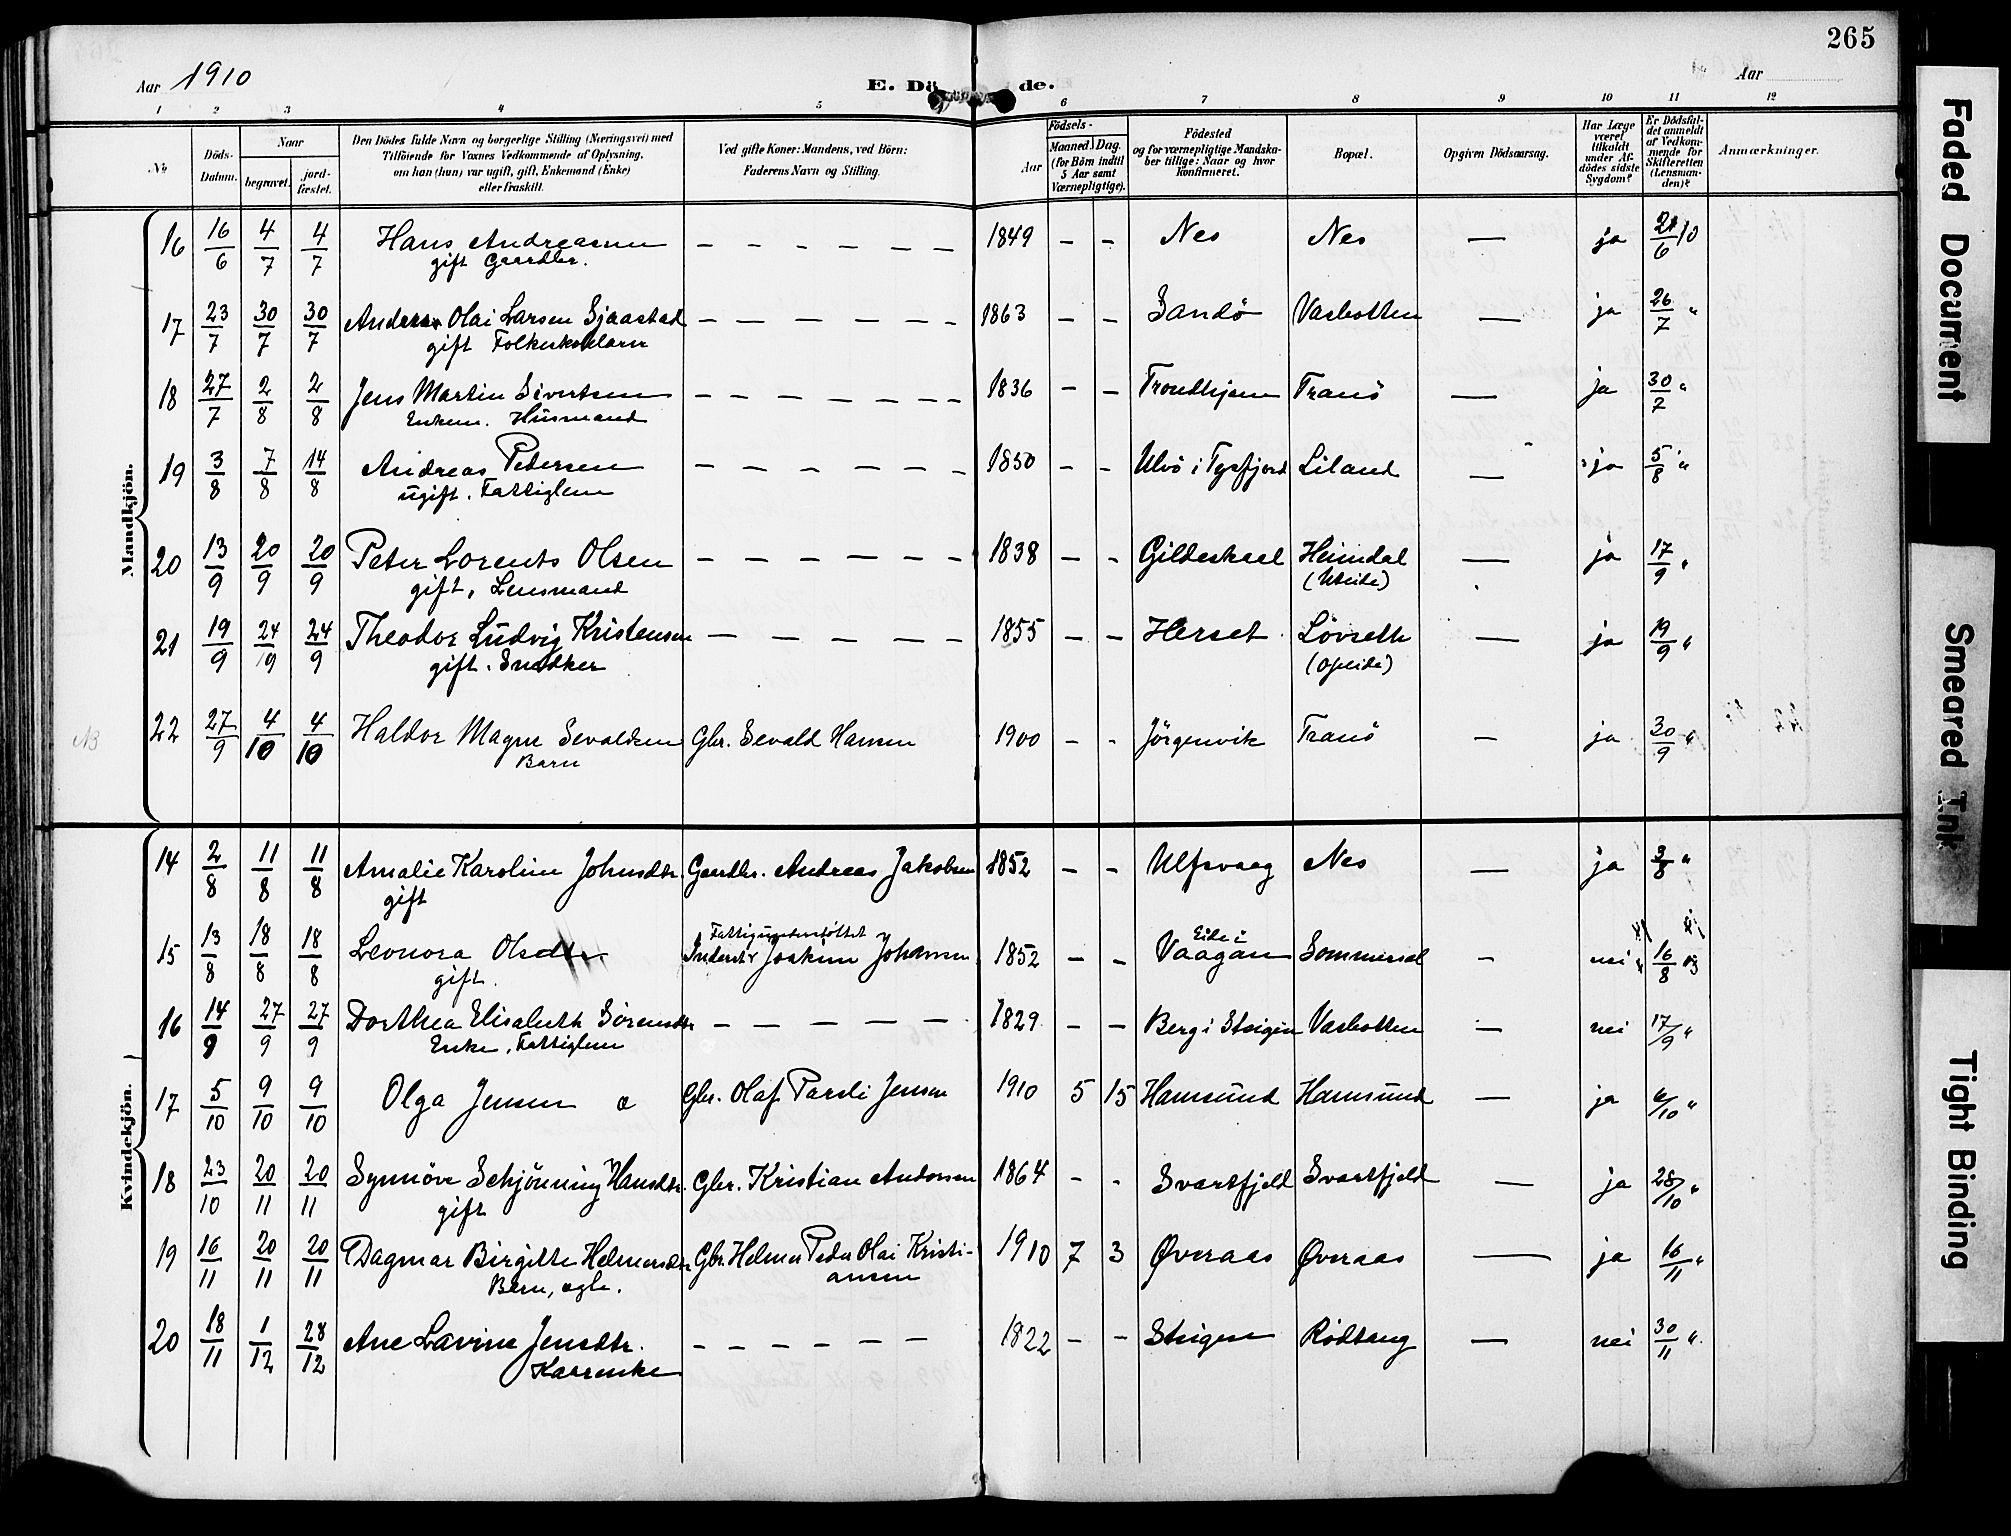 265
Aar 1910
E. Dö de.
Aar
1 2 3 4 5 6 7 8 9 10 11 12
No
Döds-Datum.
Naar
begravet.
jord-fæstet.
Den Dödes fulde Navn og borgerlige Stilling (Næringsvei) med
Tilföiende for Voxnes Vedkommende af Oplysning,
om han (hun) var ugift, gift, Enkemand (Enke)
eller fraskilt.
Ved gifte Koner: Mandens, ved Börn:
Faderens Navn og Stilling.
Födsels-
Aar
Maaned Dag.
(for Börn indtil
5 Aar samt
Værnepligtige).
Födested
og for værnepligtige Mandska-
ber tillige: Naar og hvor
Konfirmeret.
Bopæl.
Opgiven Dödsaarsag.
Har Læge
været
tilkaldt
under Af-
dödes sidste
Sygdom?
Er Dödsfal-
det anmeldt
af Vedkom-
mende for
Skifteretten
(Lensman-
den)?
Anmærkninger.
Mandkjön.
16 16/6 4/7 4/7 Hans Andreasen – – – – – – 1849 – – Nes Nes — ja 21/6 10
gift Gaardbr.
17 23/7 30/7 30/7 Anders Olai Larsen Sjaastad – – – – – – 1863 – – Sandö Vasbotten — ja 26/7 "
gift Folkeskolelærer
18 27/7 2/8 2/8 Jens Martin Sivertsen – – – – – – – 1836 – – Trondhjem Tranö — ja 30/7 "
Enkem. Husmand
19 3/8 7/8 14/8 Andreas Pedersen – – – – – – 1850 – – Ulvö i Tysfjord Liland — ja 5/8 "
ugift. Fattiglem
20 13/9 20/9 20/9 Peter Lorents Olsen – – – – – – 1838 – – Gildeskaal Heimdal — ja 17/9 "
gift, Lensmand (Uteide)
21 19/9 24/9 24/9 Theodor Ludvig Kristensen – – – – – 1855 – – Herset Lövseth — ja 19/9 "
gift. Snedker (Opeide)
NB 22 27/9 4/10 4/10 Haldor Magne Sevaldsen Gbr. Sevald Hansen 1900 – – Jörgenvik Tranö — ja 30/9 "
Barn
Kvindekjön.
14 2/8 11/8 11/8 Amalie Karoline Johnsdtr. Gaardbr. Andreas Jakobsen 1852 – – Ulfsvaag Nes — ja 3/8 "
gift
Fattigunderstöttet Eide i
15 13/8 18/8 18/8 Leonora Olsdtr Inderst Joakim Johansen 1852 – – Vaagan Sommersel – nei 16/8
gift.
16 14/9 27/9 27/9 Dorthea Elisabeth Sörensdtr – – – – – 1829 – – Berg i Steigen Vasbotten — nei 17/9 "
Enke, Fattiglem
17 5/10 9/10 9/10 Olga Jensen æ Gbr. Olaf Pareli Jensen 1910 5 15 Hamsund Hamsund — ja 6/10 "
18 23/10 20/11 20/11 Synnöve Schjönning Hansdtr. Gbr. Kristian Andorsen 1864 – – Svartfjeld Svartfjeld — ja 28/10 "
gift
19 16/11 20/11 20/11 Dagmar Birgitte Helmersdtr Gbr. Helmer Peder Olai Kristi- 1910 7 3 Øveraas Øveraas — ja 16/11 "
Barn, egte. ansen
20 18/11 1/12 28/12 Ane Lavina Jensdtr. – – – – – – 1822 – – Steigen Rödtang — nei 30/11 "
Kaarenke
Faded Document
Smeared Ink
Tight Binding